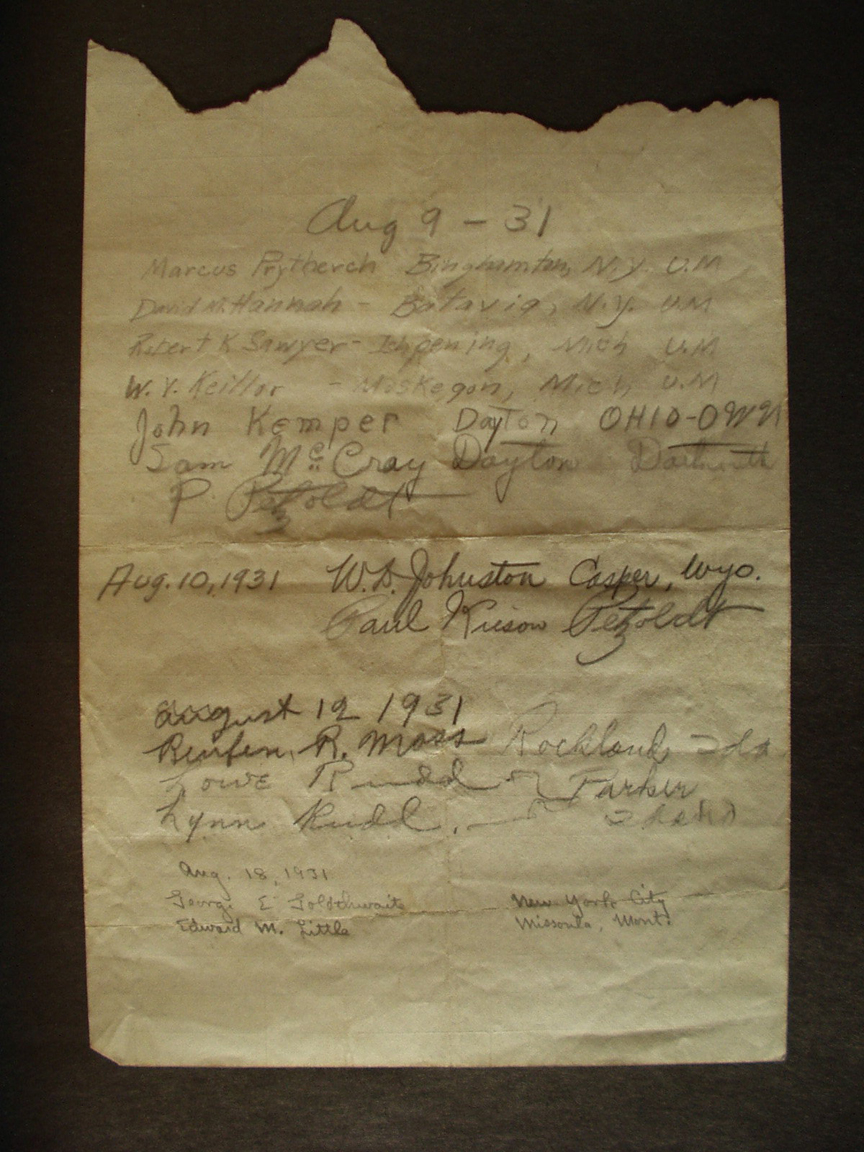 Aug 9 - 31
Marcus Prytherch Binghamton, N.Y. U.M
David M. Hannah - Batavia, N.Y. U.M
Robert K Sawyer - Ishpening, Mich U.M
W.V. Keillor - Muskegon, Mich U.M
John Kemper Dayton OHIO-OWU
Sam McCray Dayton Dartmouth
P. Petzoldt
Aug. 10, 1931 W.D. Johnston Casper, Wyo.
Paul Petzoldt
august 12 1931
Reufen R. Moss Rockland Ida
Lowe Rudd Parker
Lynn Rudd. Idaho
Aug. 18, 1931
George E Goldthwaite New York City
Edward M. Little Missoula, Mont.